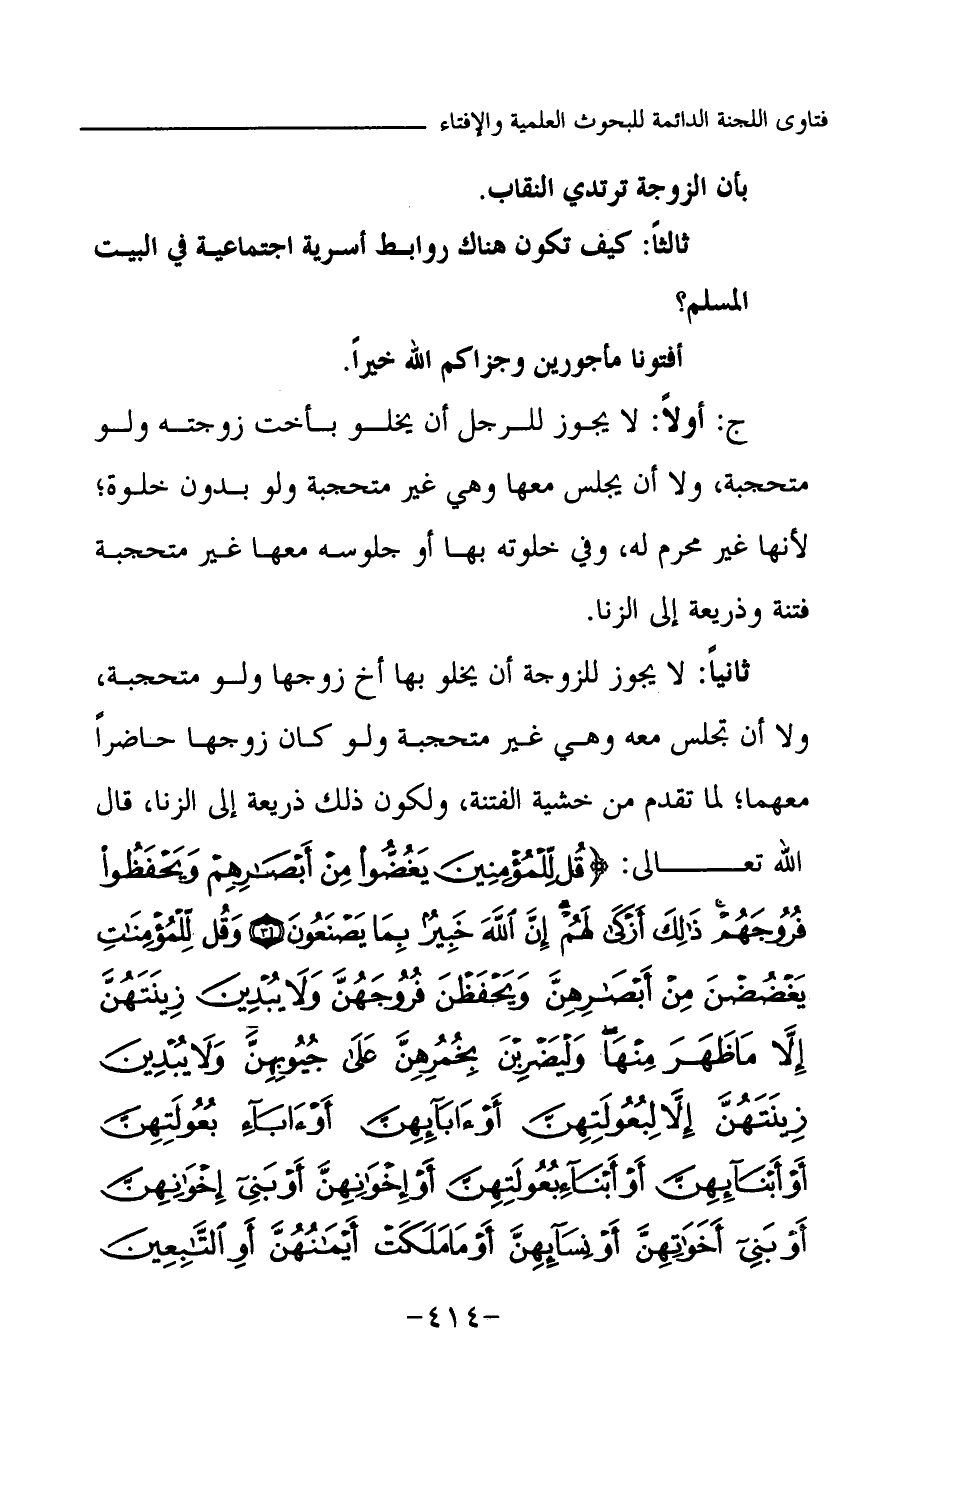 فتاوى اللجنة الدائمة للبحوث العلمية والإفتاء
بأن الزوجة ترتدي النقاب.
ثالثاً: كيف تكون هناك روابط أسرية اجتماعية في البيت
المسلم؟
أفتونا مأجورين وجزاكم الله خيراً.
ج: أولاً: لا يجوز للرجل أن يخلو بأخت زوجته ولو
متحجبة، ولا أن يجلس معها وهي غير متحجبة ولو بدون خلوة؛
لأنها غير محرم له، وفي خلوته بها أو جلوسه معها غير متحجبة
فتنة وذريعة إلى الزنا.
ثانياً: لا يجوز للزوجة أن يخلو بها أخ زوجها ولو متحجبة،
ولا أن تجلس معه وهي غير متحجبة ولو كان زوجها حاضراً
معهما؛ لما تقدم من خشية الفتنة، ولكون ذلك ذريعة إلى الزنا، قال
الله تعالى: ﴿قُل لِّلْمُؤْمِنِينَ يَغُضُّوا۟ مِنْ أَبْصَـٰرِهِمْ وَيَحْفَظُوا۟
فُرُوجَهُمْ ۚ ذَٰلِكَ أَزْكَىٰ لَهُمْ ۗ إِنَّ ٱللَّهَ خَبِيرٌۢ بِمَا يَصْنَعُونَ ٣٠ وَقُل لِّلْمُؤْمِنَـٰتِ
يَغْضُضْنَ مِنْ أَبْصَـٰرِهِنَّ وَيَحْفَظْنَ فُرُوجَهُنَّ وَلَا يُبْدِينَ زِينَتَهُنَّ
إِلَّا مَا ظَهَرَ مِنْهَا ۖ وَلْيَضْرِبْنَ بِخُمُرِهِنَّ عَلَىٰ جُيُوبِهِنَّ ۖ وَلَا يُبْدِينَ
زِينَتَهُنَّ إِلَّا لِبُعُولَتِهِنَّ أَوْ ءَابَآئِهِنَّ أَوْ ءَابَآءِ بُعُولَتِهِنَّ
أَوْ أَبْنَآئِهِنَّ أَوْ أَبْنَآءِ بُعُولَتِهِنَّ أَوْ إِخْوَٰنِهِنَّ أَوْ بَنِىٓ إِخْوَٰنِهِنَّ
أَوْ بَنِىٓ أَخَوَٰتِهِنَّ أَوْ نِسَآئِهِنَّ أَوْ مَا مَلَكَتْ أَيْمَـٰنُهُنَّ أَوِ ٱلتَّـٰبِعِينَ
-٤١٤-